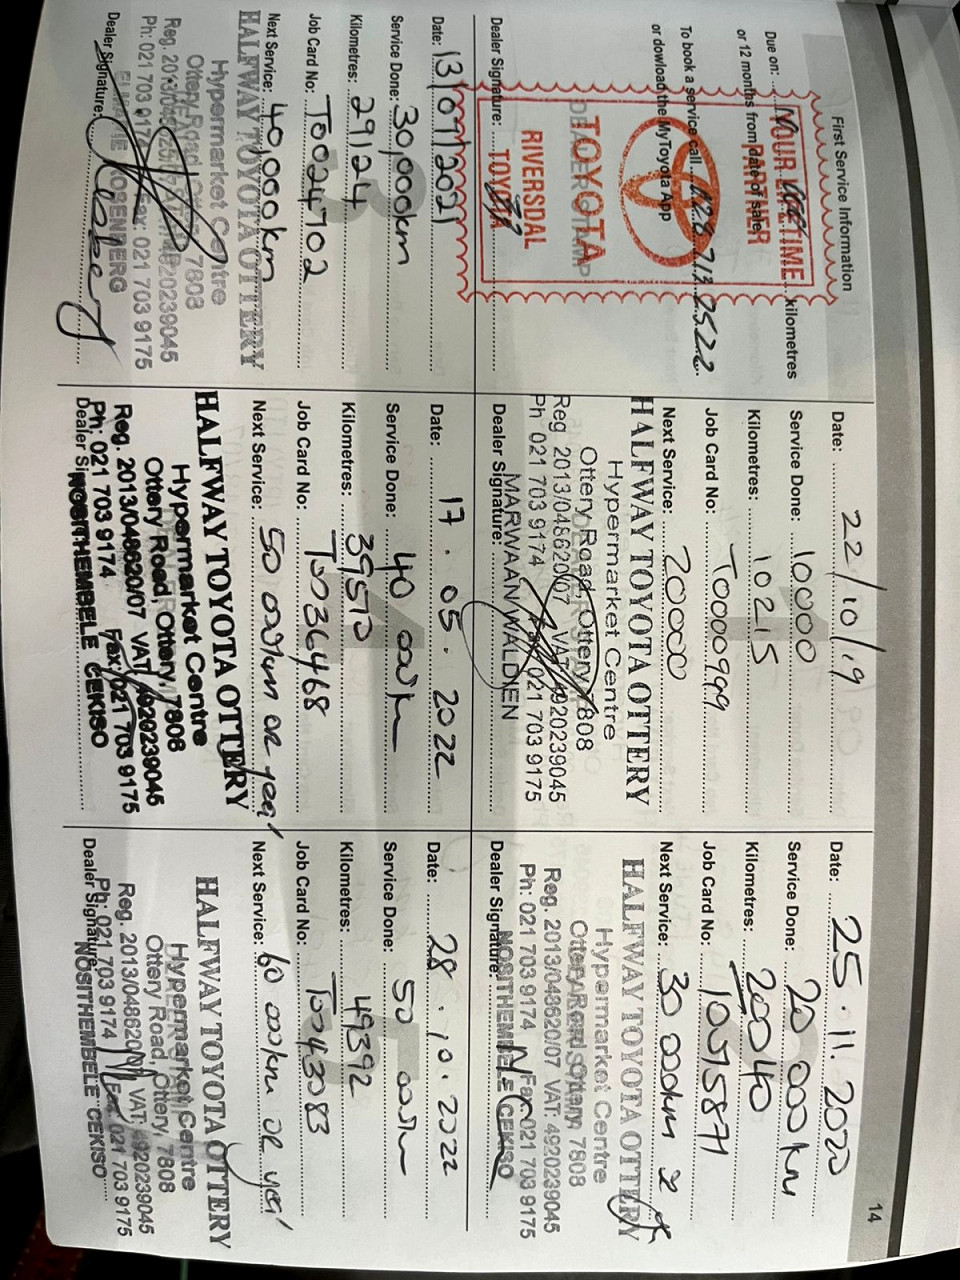 14
First Service Information
Due on: kilometres
or 12 months from date of sale
To book a service call 028 713 2522
or dowload the MyToyota App
YOUR LIFETIME
PARTNER
TOYOTA
DEALER STAMP
RIVERSDAL
TOYOTA
Dealer Signature:
Date: 22/10/19
Service Done: 10000
Kilometres: 10215
Job Card No: T0000999
Next Service: 20000
HALFWAY TOYOTA OTTERY
Hypermarket Centre
Ottery Road, Ottery, 7808
Reg. 2013/048620/07 VAT: 4920239045
Ph: 021 703 9174 Fax: 021 703 9175
MARWAAN WALDIEN
Dealer Signature:
Date: 25.11.2020
Service Done: 20 000 km
Kilometres: 20040
Job Card No:
Next Service: 30 000km
HALFWAY TOYOTA OTTERY
Hypermarket Centre
Ottery Road, Ottery, 7808
Reg. 2013/048620/07 VAT: 4920239045
Ph: 021 703 9174 Fax: 021 703 9175
Dealer Signature:
NOSITHEMBELE CEKISO
Date: 13/07/2021
Service Done: 30,000km
Kilometres: 29124
Job Card No: T0024702
Next Service: 40,000km
HALFWAY TOYOTA OTTERY
Hypermarket Centre
Ottery Road, Ottery, 7808
Reg. 2013/048620/07 VAT: 4920239045
Ph: 021 703 9174 Fax: 021 703 9175
ROSENBERG
Dealer Signature:
Date: 17.05.2022
Service Done: 40 000km
Kilometres: 39510
Job Card No: T0036468
Next Service: 50 000km or year
HALFWAY TOYOTA OTTERY
Hypermarket Centre
Ottery Road, Ottery, 7808
Reg. 2013/048620/07 VAT: 4920239045
Ph: 021 703 9174 Fax: 021 703 9175
Dealer Signature:
NOSITHEMBELE CEKISO
Date: 28.10.2022
Service Done: 50 000km
Kilometres: 49392
Job Card No: T0043083
Next Service: 60 000km or year
HALFWAY TOYOTA OTTERY
Hypermarket Centre
Ottery Road, Ottery, 7808
Reg. 2013/048620/07 VAT: 4920239045
Ph: 021 703 9174 Fax: 021 703 9175
Dealer Signature:
NOSITHEMBELE CEKISO